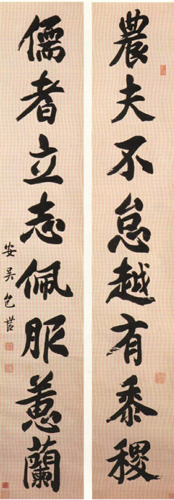 農夫不怠越有黍稷
儒者立志佩服蕙蘭
安吳包世臣